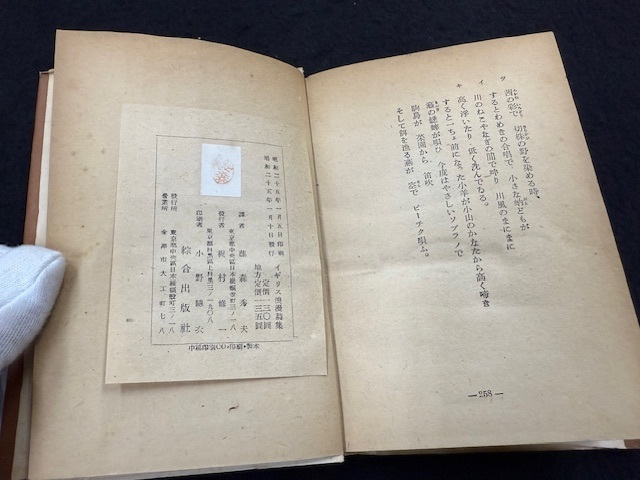 茜の彩で 切株の野を染める時、
するとわめきの合唱で、小さな蚋どもが
川のねこやなぎの間で呻り 川風のまにまに
高く浮いたり 低く沈んでゐる。
すると一ちょ前になった小羊が小山のかなたから高く啼き
籬の蟋蟀が唄ひ 今度はやさしいソプラノで
駒鳥が 菜園から 笛吹
そして餌を漁る燕が 空で ピーチク唄ふ。
—258—
昭和二十五年一月五日印刷
昭和二十五年一月十日發行
イギリス浪漫詩集
定價一三〇圓
地方定價一三五圓
譯者 藤森秀夫
東京都中央區日本橋蠣殻町三ノ一八
發行者 梶村修一
東京都目黒區上目黒三ノ一九〇八
印刷者 小野
發行所 東京都中央區日本橋蠣殻町三ノ一八
綜合出版社
營業所 金澤市大工町七八
中越印刷CO・印刷・製本